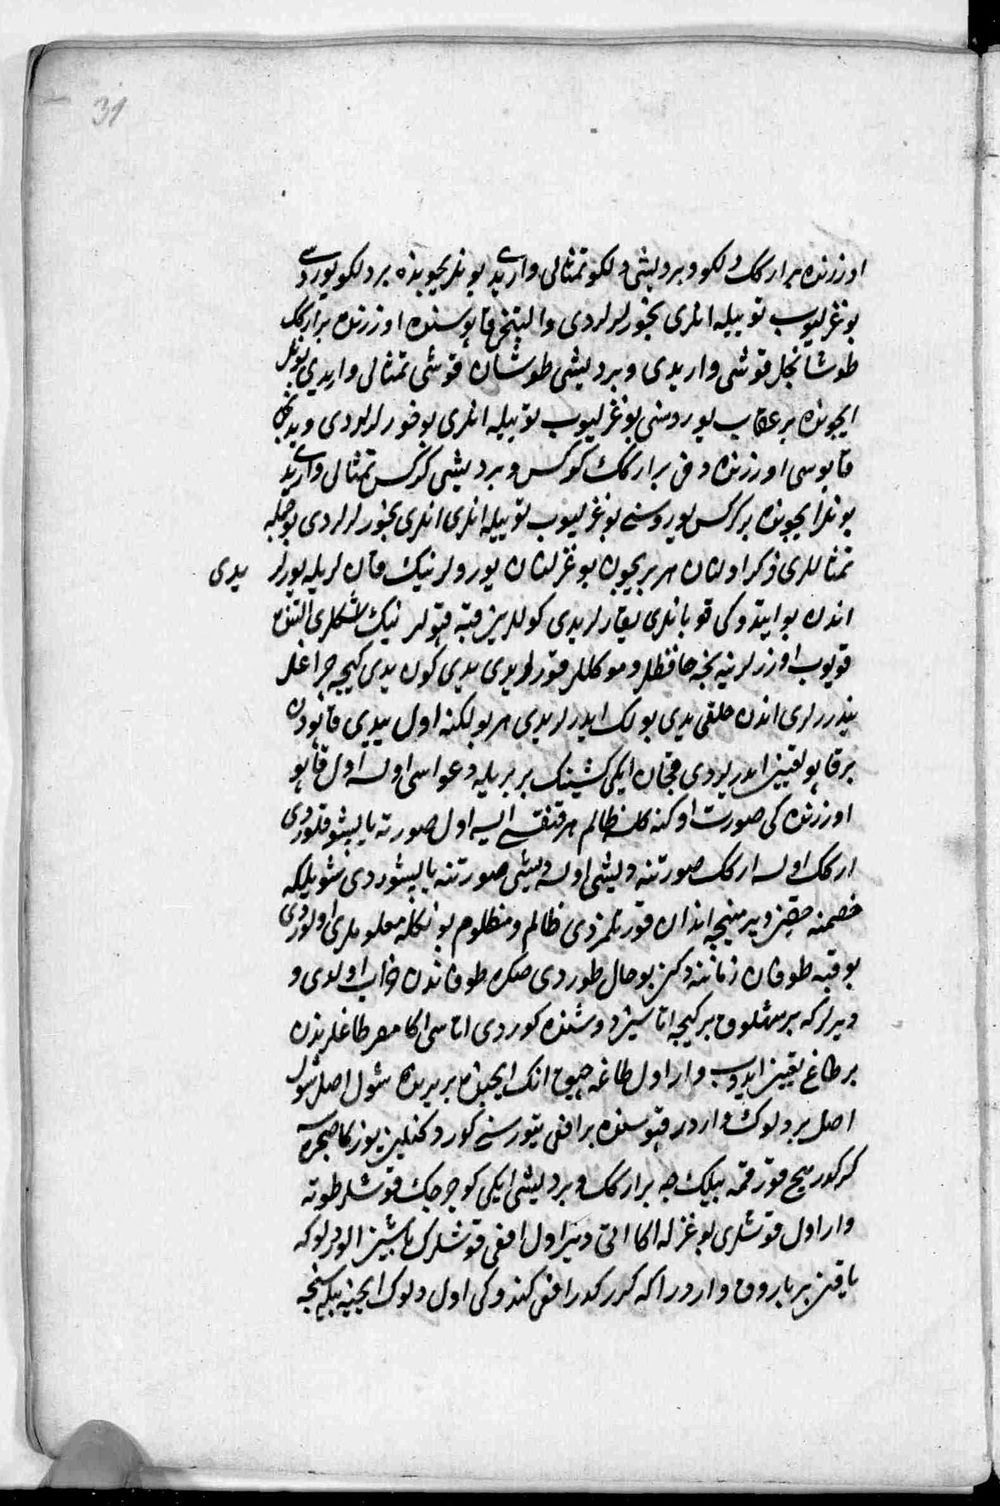 31
اوزرنده بر ارکک دلکو و بر دیشی دلکو تمثالی واریدی بونلریچوبنده بر دلکو یوردسی
بوغزلیوب توییله انلری بخورلرلردی و التنجی قاپوسنده اوزرنده بر ارکک
طوشانجل قوشی واریدی و بر دیشی طوشان قوشی تمثالی واریدی بونلر
ایچونده بر عقاب یوروسنی بوغزلیوب توییله انلری بوخورلرلردی و یدنجی
قاپوسی اوزرنده دخی بر ارکک کرکس و بر دیشی کرکس تمثالی واریدی
بونلرایچونده بر کرکس یوروسنی بوغزلیوب توییله انلری انلری بخورلرلردی بو جمله
تمثاللری ذکر اولنان هر بریچون بوغزلنان یورولرنیک قان لریله یورلر یدی
اندن بو ایتدوکی قوبانلری یقارلریدی کوللرین قبه قپولرنیک اشکلری التنه
قویوب اوزرلرینه نجه حافظلر و موکللر قورلریدی یدی کون یدی کیجه چراغلر
یندررلری اندن خلقی یدی بولک ایدرلریدی هر بولکنه اول یدی قاپودن
بر قاپو تعیین ایدرلردی قچان ایکی کشینک بر بریله دعواسی اولسه اول قاپو
اوزرنده کی صورت اوکنه کلسه ظالم هر قنقسی ایسه اول صورته یاپیشو قلوردی
ارکک اولسه ارکک صورتنه دیشی اولسه دیشی صورتنه یاپیشوردی شویلکه
خصمنه حقین ویرمینجه اندان قورتلمزدی ظالم و مظلوم بونکله معلوملری اولوردی
بو قبه طوفان زماننه دکین بو حال طوردی صکره طوفاندن خراب اولدی و
دیرلرکه بر مهتلوق بر کیجه اتاسین دوشنده کوردی اتاسی اکا مصر طاغلریندن
بر طاغ تعیین ایدوب وار اول طاغه چیق انک ایچنده بر یرنده شول اصل شول
اصل بر دلوک واردر قپوسنده بر افعی یتورسنی کوردکلین یوزکا صچره
کرکدر هیچ قورقمه بیلک جه بر ارکک و بر دیشی ایکی کوجرجک قوشلر طوته
وار اول قوشلری بوغزله اکا اتی ویر اول افعی قوشلرک باشین الور دلوکه
یاقین بر یاروق واردر اکه کرر کدر افعی کندوکی اول دلوک ایچینه بکینجه